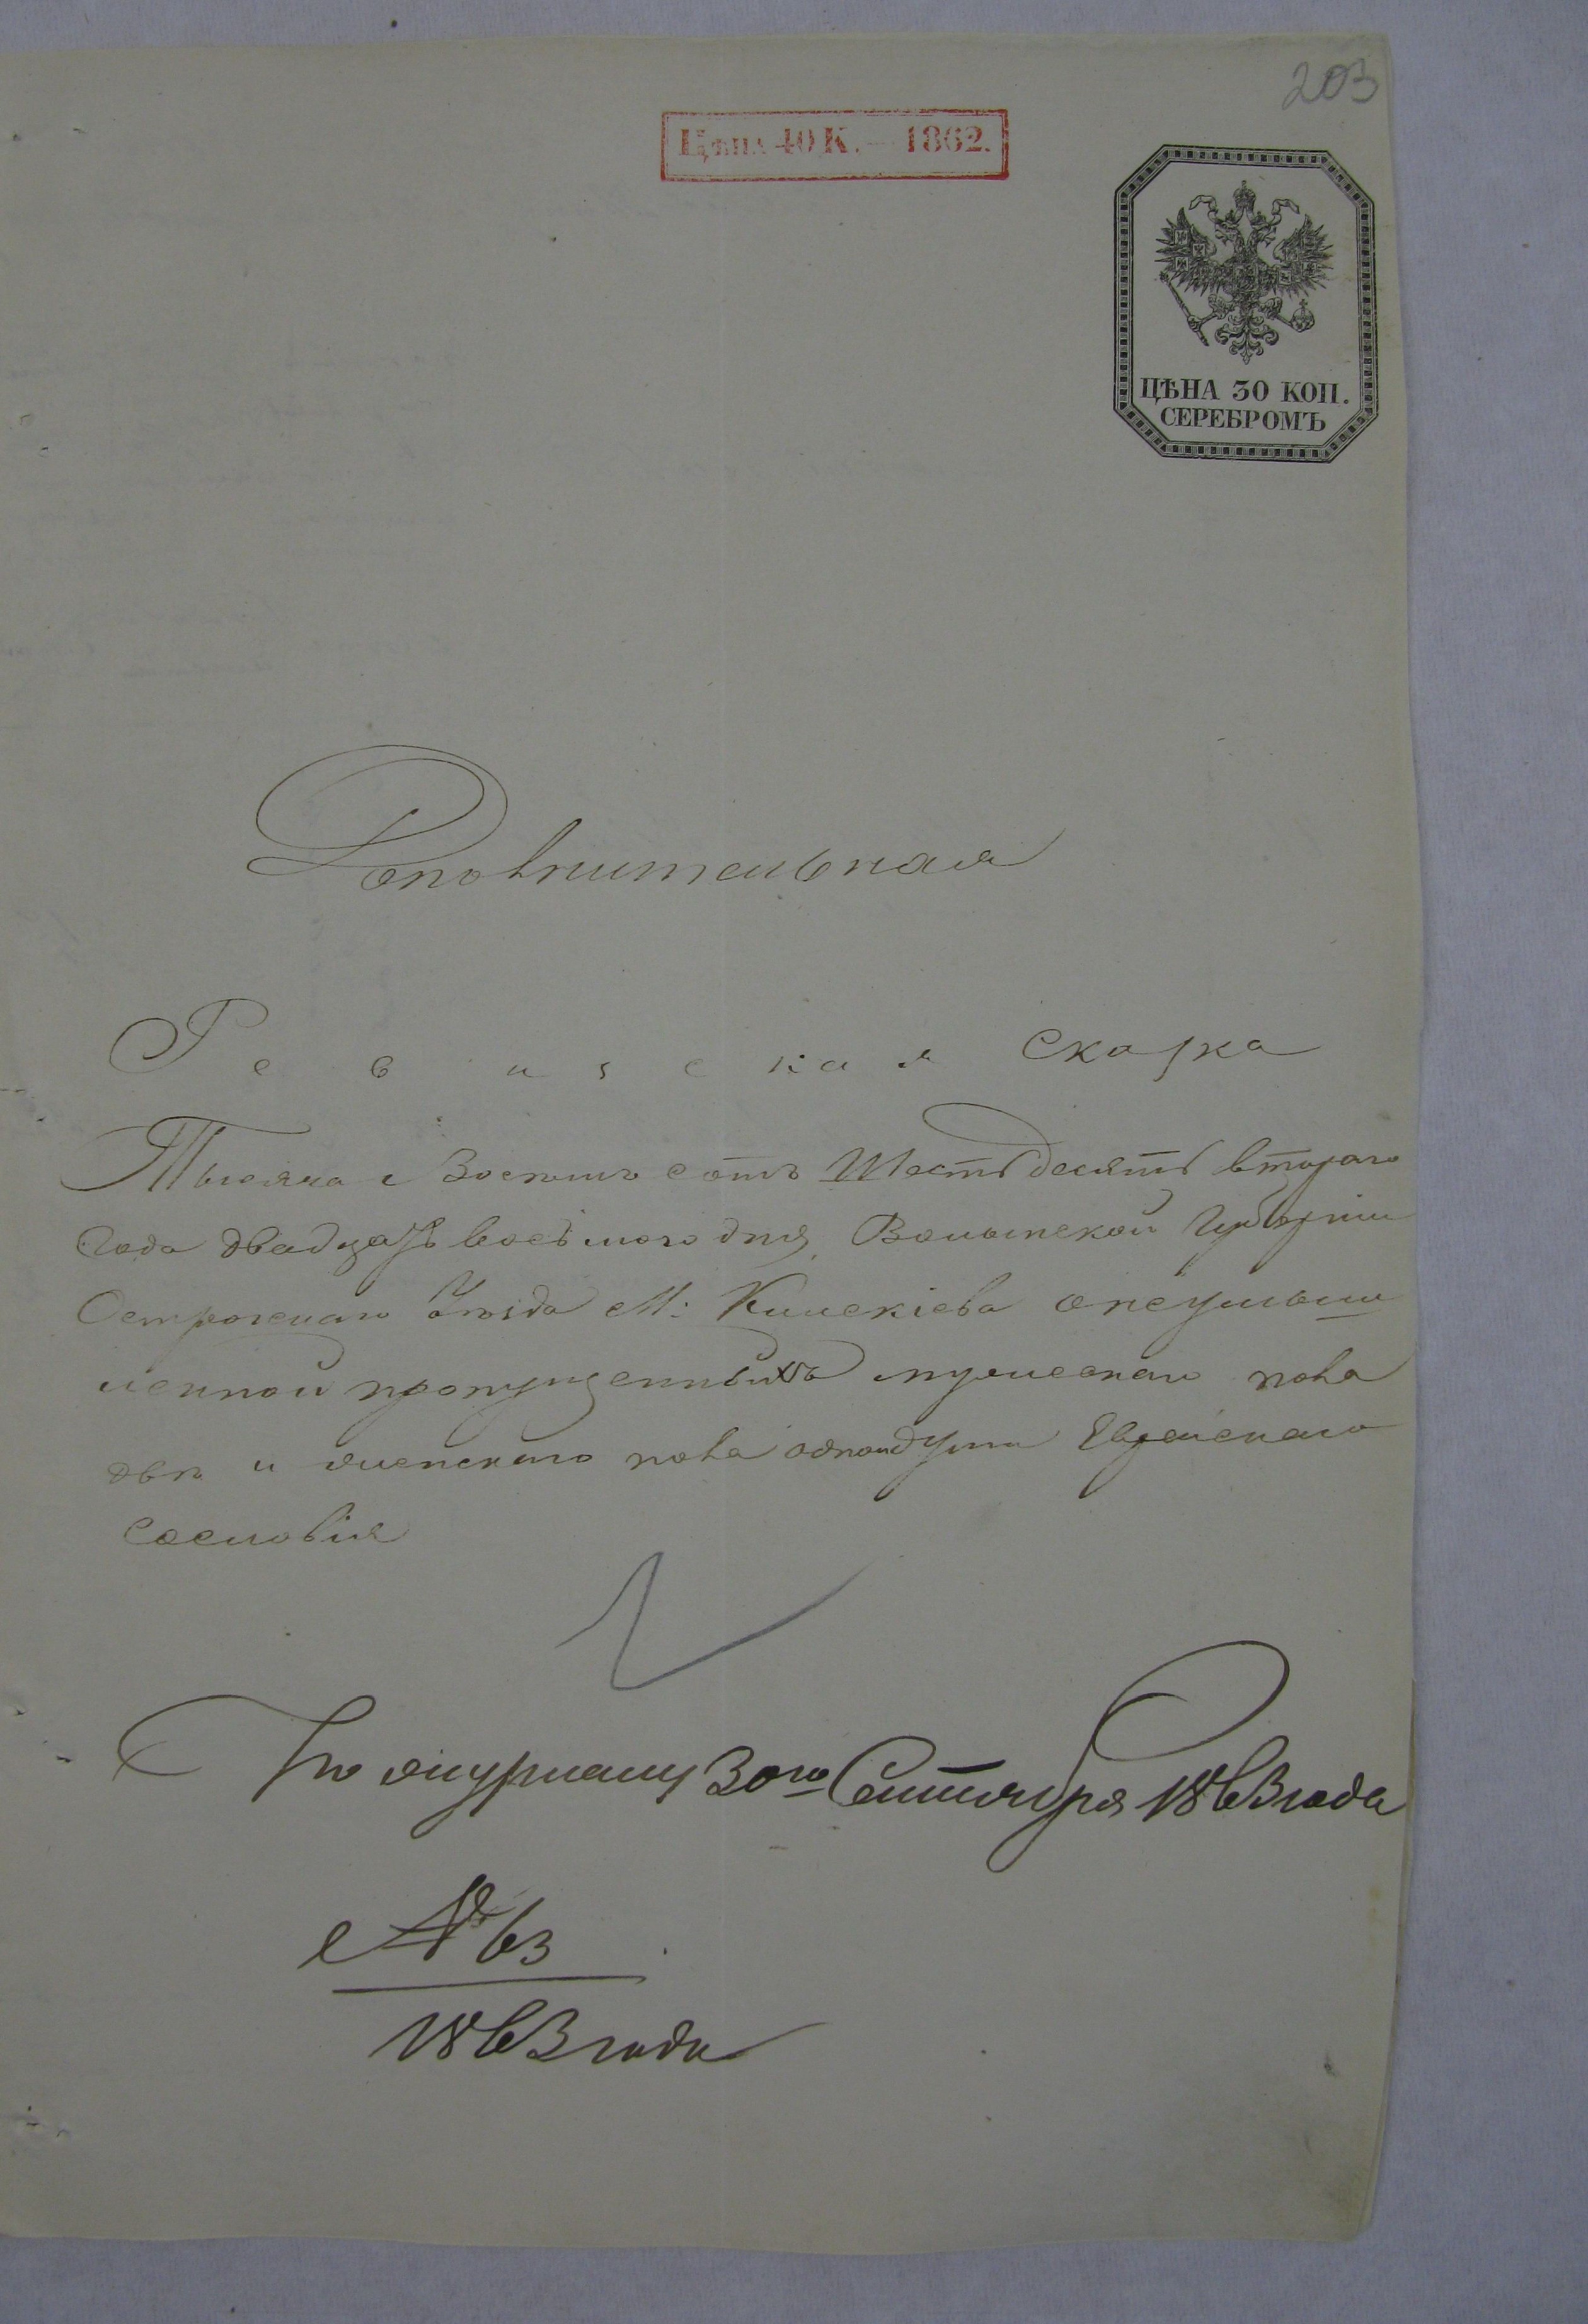 203
Цѣна 40 К. — 1862.
ЦѢНА 30 КОП.
СЕРЕБРОМЪ
Дополнительная
Ревизская Сказка
Тысяча Восемь сотъ Шестьдесятъ втораго
Года двадцать восьмого дня, Волынской Губерніи
Острожскаго Уѣзда М: Килекіева
пропущенныхъ мужескаго пола
двѣ и женскаго пола одной души Еврейскаго
Сословія
По журналу 30го Сентября 1863 года
№ 63
1863 года